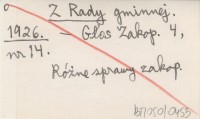 Z Rady gminnej.
1926. — Głos Zakop. 4,
nr 14.
Różne sprawy zakop.